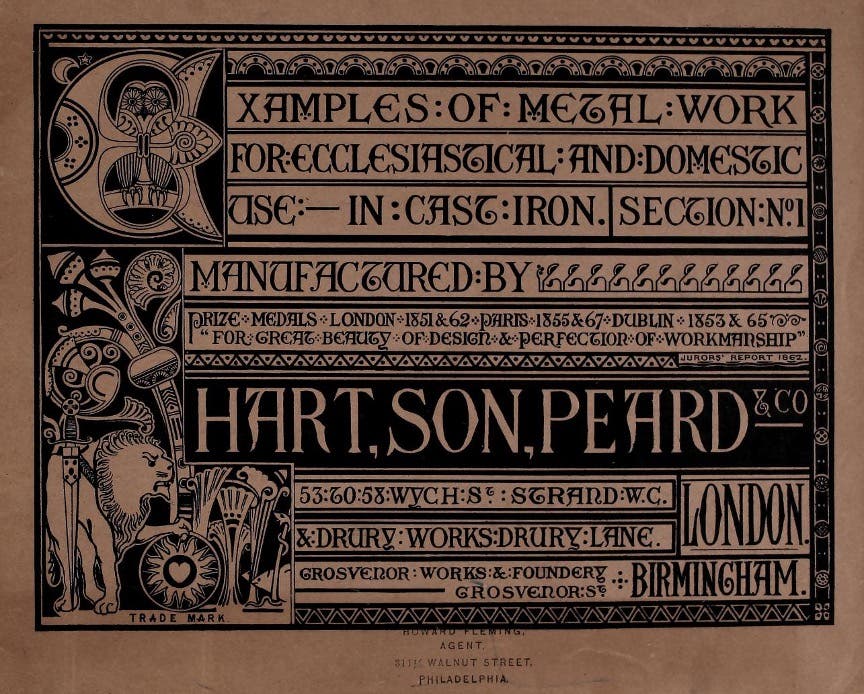 EXAMPLES:OF:METAL:WORK
FOR:ECCLESIASTICAL:AND:DOMESTIC
USE:— IN:CAST:IRON. SECTION:No.1
MANUFACTURED:BY
PRIZE MEDALS LONDON 1851&62 PARIS 1855&67 DUBLIN 1853 & 65
"FOR GREAT BEAUTY OF DESIGN & PERFECTION OF WORKMANSHIP"
JURORS' REPORT 1862.
HART, SON, PEARD & CO
53:TO:58:WYCH:ST: STRAND:W.C.
&:DRURY:WORKS:DRURY:LANE.
LONDON.
GROSVENOR:WORKS:&:FOUNDERY
GROSVENOR:ST:
BIRMINGHAM.
TRADE MARK.
HOWARD FLEMING,
AGENT,
WALNUT STREET,
PHILADELPHIA.